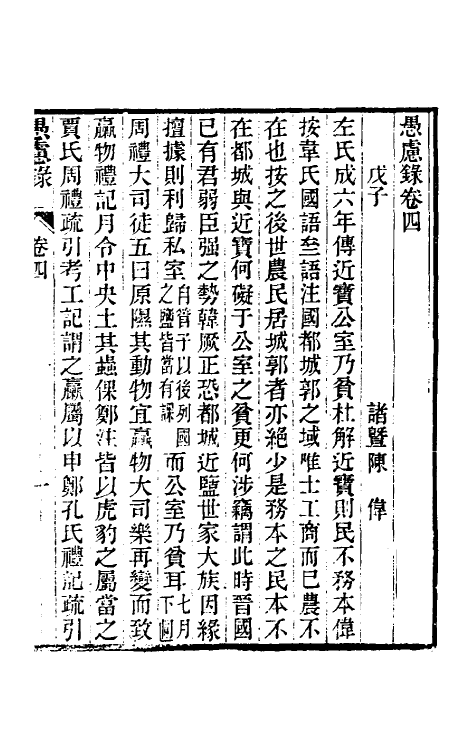 愚慮錄卷四
戊子　諸暨陳　偉
左氏成六年傳近寶公室乃貧杜解近寶則民不務本偉
按韋氏國語垒語注國都城郭之域唯士工商而已農不
在也按之後世農民居城郭者亦絕少是務本之民本不
在都城與近寶何礙于公室之貧更何涉竊謂此時晉國
已有君弱臣强之勢韓厥正恐都城近鹽世家大族因緣
擅據則利歸私室自管子以後列國之鹽皆當有課而公室乃貧耳七月下同
周禮大司徒五曰原隰其動物宜蠃物大司樂再變而致
蠃物禮記月令中央土其蟲倮鄭注皆以虎豹之屬當之
賈氏周禮疏引考工記謂之蠃屬以申鄭孔氏禮記疏引
愚慮錄　卷四　一